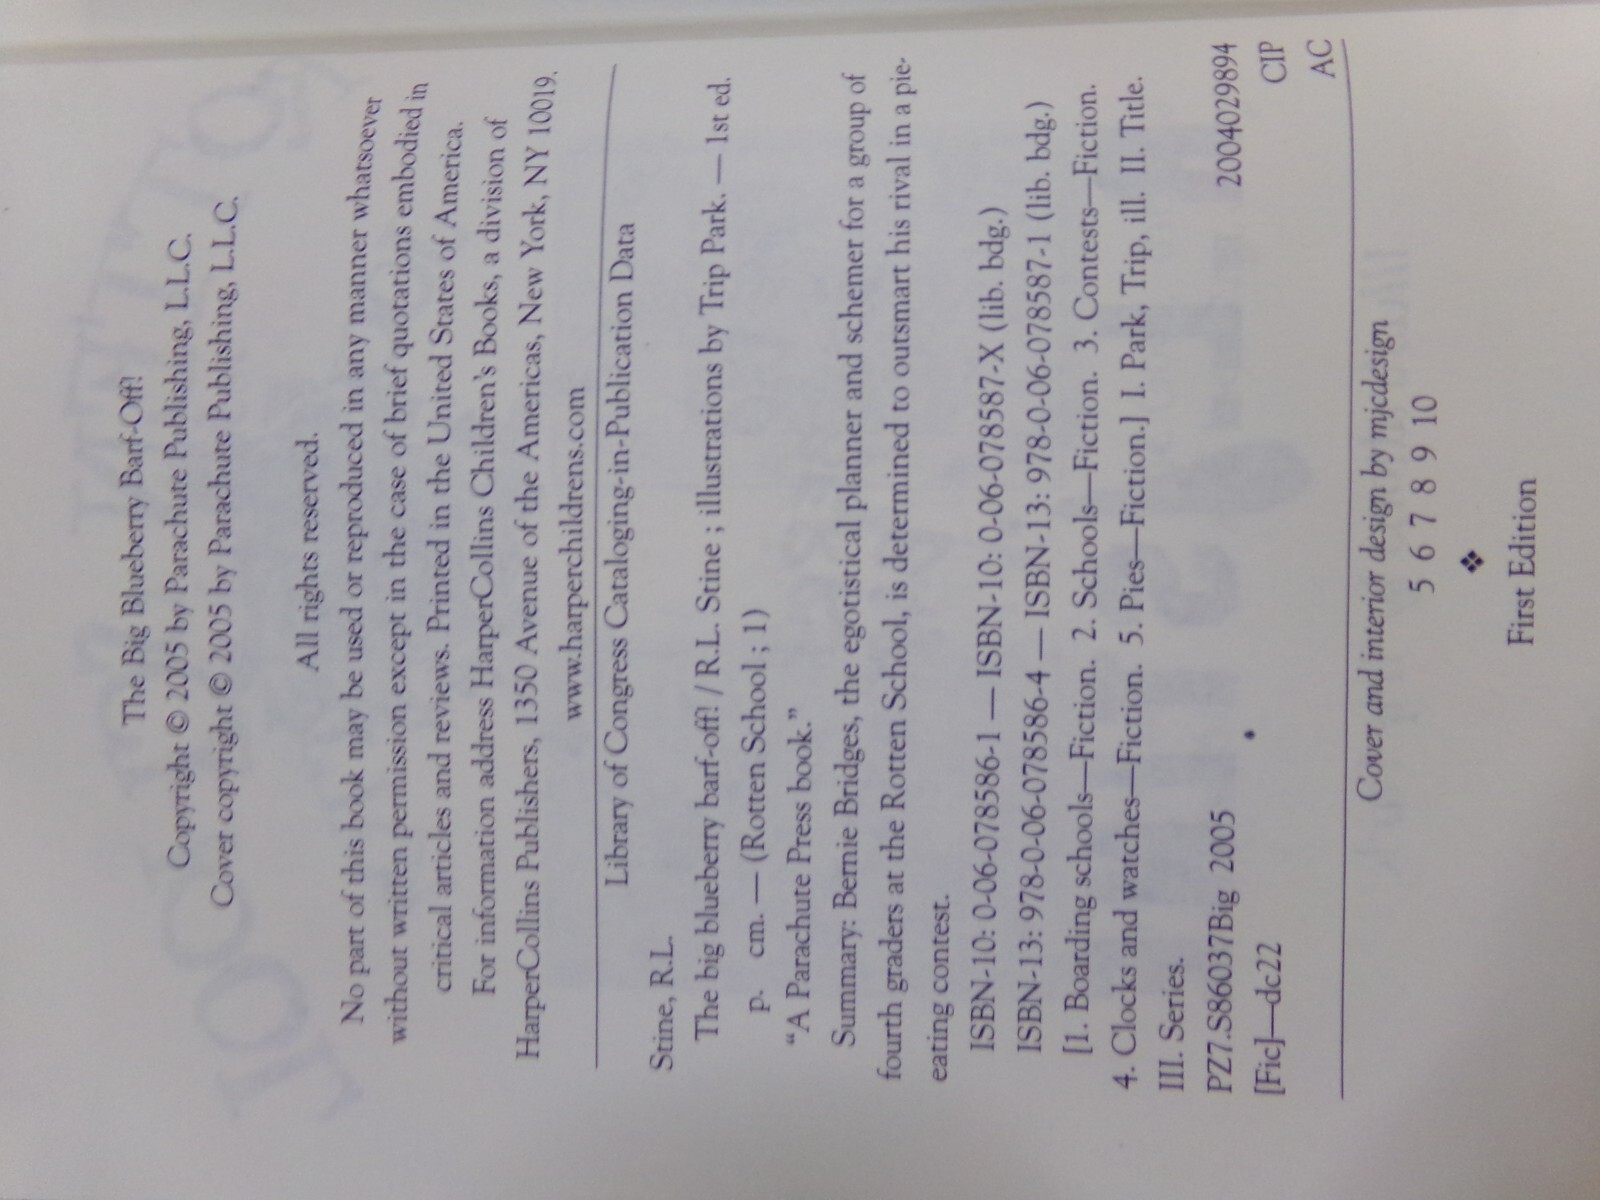 The Big Blueberry Barf-Off!
Copyright © 2005 by Parachute Publishing, L.L.C.
Cover copyright © 2005 by Parachute Publishing, L.L.C.
All rights reserved.
No part of this book may be used or reproduced in any manner whatsoever
without written permission except in the case of brief quotations embodied in
critical articles and reviews. Printed in the United States of America.
For information address HarperCollins Children's Books, a division of
HarperCollins Publishers, 1350 Avenue of the Americas, New York, NY 10019.
www.harperchildrens.com
Library of Congress Cataloging-in-Publication Data
Stine, R.L.
The big blueberry barf-off! / R.L. Stine ; illustrations by Trip Park. — 1st ed.
p. cm. — (Rotten School ; 1)
“A Parachute Press book.”
Summary: Bernie Bridges, the egotistical planner and schemer for a group of
fourth graders at the Rotten School, is determined to outsmart his rival in a pie-
eating contest.
ISBN-10: 0-06-078586-1 — ISBN-10: 0-06-078587-X (lib. bdg.)
ISBN-13: 978-0-06-078586-4 — ISBN-13: 978-0-06-078587-1 (lib. bdg.)
[1. Boarding schools—Fiction. 2. Schools—Fiction. 3. Contests—Fiction.
4. Clocks and watches—Fiction. 5. Pies—Fiction.] I. Park, Trip, ill. II. Title.
III. Series.
PZ7.S86037Big 2005 2004029894
[Fic]—dc22 CIP
AC
Cover and interior design by mjcdesign
5 6 7 8 9 10
❖
First Edition